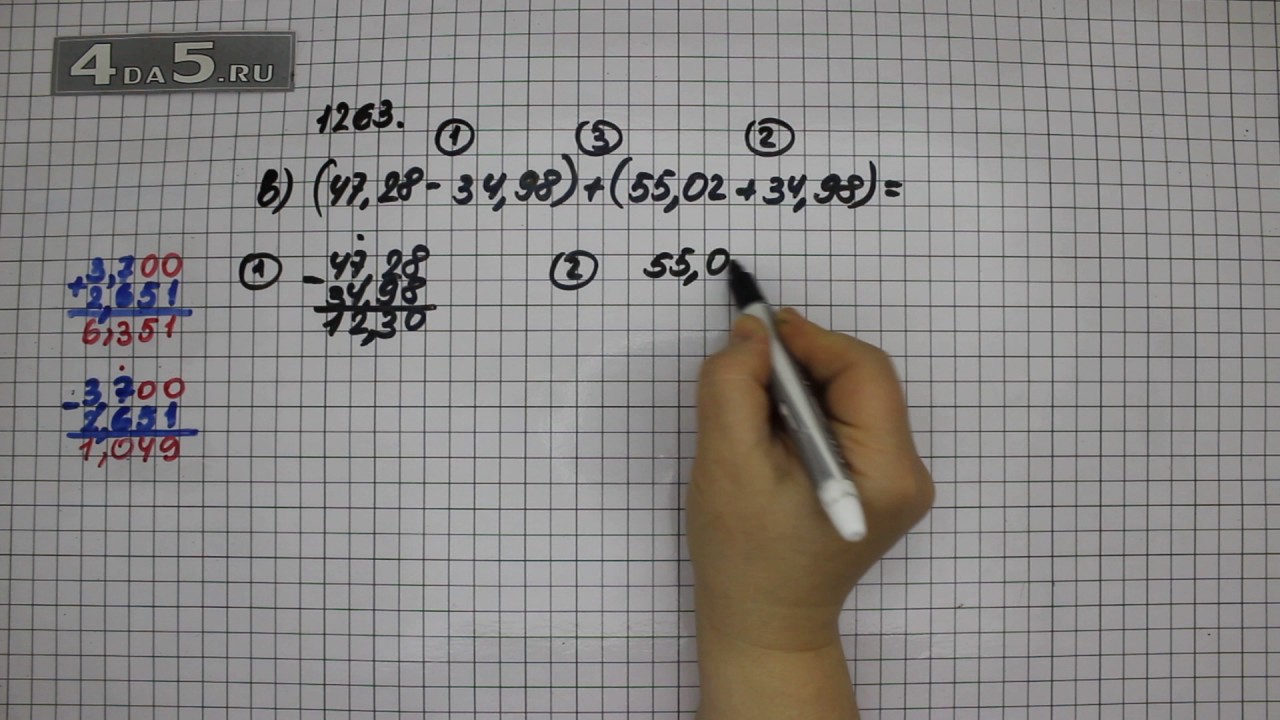 4DA5.RU
1263.
① ③ ②
в) (47,28 - 34,98) + (55,02 + 34,98) =
① 47,28
- 34,98
12,30
② 55,0
3,700
+ 2,651
6,351
3,700
- 2,651
1,049